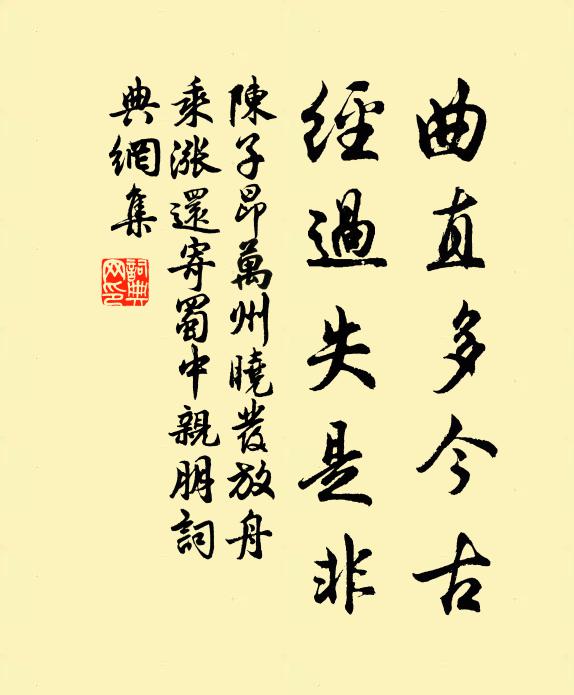 曲直多今古
經過失是非
陳子昂萬州曉發放舟
乘漲還寄蜀中親朋詞
典網集
詞典網印